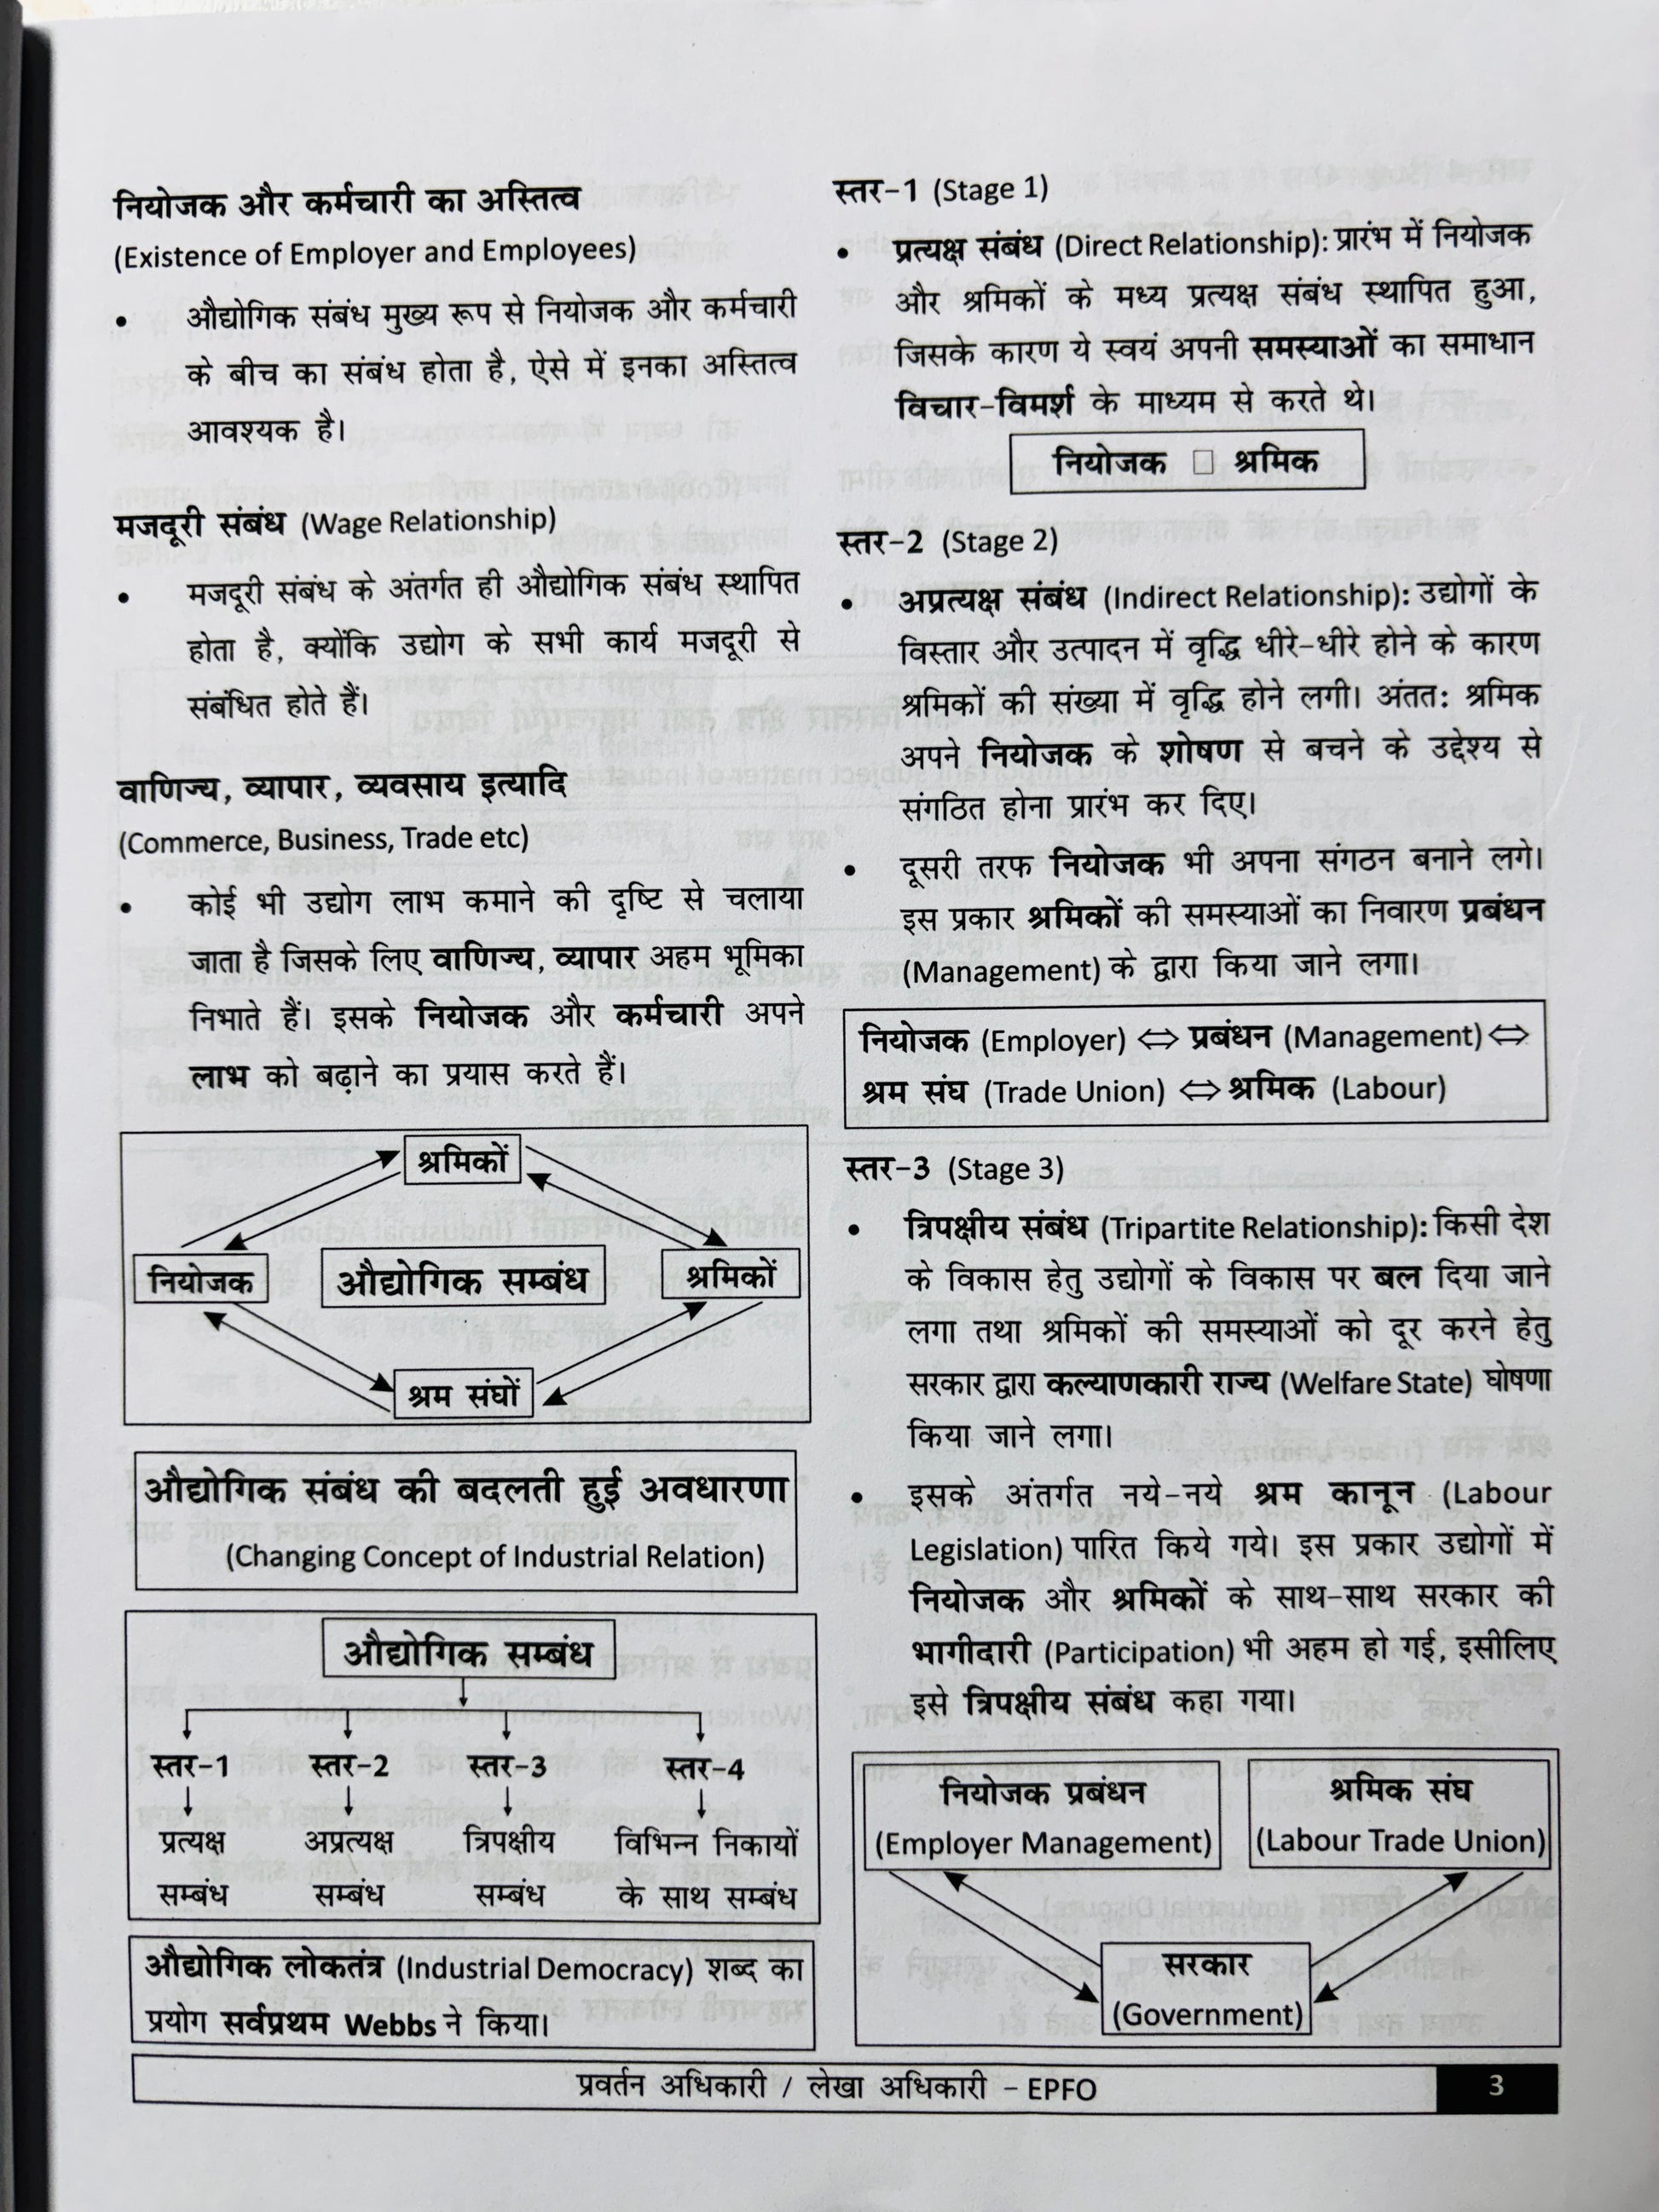 नियोजक और कर्मचारी का अस्तित्व
(Existence of Employer and Employees)
• औद्योगिक संबंध मुख्य रूप से नियोजक और कर्मचारी
के बीच का संबंध होता है, ऐसे में इनका अस्तित्व
आवश्यक है।
मजदूरी संबंध (Wage Relationship)
• मजदूरी संबंध के अंतर्गत ही औद्योगिक संबंध स्थापित
होता है, क्योंकि उद्योग के सभी कार्य मजदूरी से
संबंधित होते हैं।
वाणिज्य, व्यापार, व्यवसाय इत्यादि
(Commerce, Business, Trade etc)
• कोई भी उद्योग लाभ कमाने की दृष्टि से चलाया
जाता है जिसके लिए वाणिज्य, व्यापार अहम भूमिका
निभाते हैं। इसके नियोजक और कर्मचारी अपने
लाभ को बढ़ाने का प्रयास करते हैं।
श्रमिकों
नियोजक औद्योगिक सम्बंध श्रमिकों
श्रम संघों
औद्योगिक संबंध की बदलती हुई अवधारणा
(Changing Concept of Industrial Relation)
औद्योगिक सम्बंध
स्तर-1 स्तर-2 स्तर-3 स्तर-4
प्रत्यक्ष अप्रत्यक्ष त्रिपक्षीय विभिन्न निकायों
सम्बंध सम्बंध सम्बंध के साथ सम्बंध
औद्योगिक लोकतंत्र (Industrial Democracy) शब्द का
प्रयोग सर्वप्रथम Webbs ने किया।
स्तर-1 (Stage 1)
• प्रत्यक्ष संबंध (Direct Relationship): प्रारंभ में नियोजक
और श्रमिकों के मध्य प्रत्यक्ष संबंध स्थापित हुआ,
जिसके कारण ये स्वयं अपनी समस्याओं का समाधान
विचार-विमर्श के माध्यम से करते थे।
नियोजक □ श्रमिक
स्तर-2 (Stage 2)
• अप्रत्यक्ष संबंध (Indirect Relationship): उद्योगों के
विस्तार और उत्पादन में वृद्धि धीरे-धीरे होने के कारण
श्रमिकों की संख्या में वृद्धि होने लगी। अंतत: श्रमिक
अपने नियोजक के शोषण से बचने के उद्देश्य से
संगठित होना प्रारंभ कर दिए।
• दूसरी तरफ नियोजक भी अपना संगठन बनाने लगे।
इस प्रकार श्रमिकों की समस्याओं का निवारण प्रबंधन
(Management) के द्वारा किया जाने लगा।
नियोजक (Employer) ⇔ प्रबंधन (Management) ⇔
श्रम संघ (Trade Union) ⇔ श्रमिक (Labour)
स्तर-3 (Stage 3)
• त्रिपक्षीय संबंध (Tripartite Relationship): किसी देश
के विकास हेतु उद्योगों के विकास पर बल दिया जाने
लगा तथा श्रमिकों की समस्याओं को दूर करने हेतु
सरकार द्वारा कल्याणकारी राज्य (Welfare State) घोषणा
किया जाने लगा।
• इसके अंतर्गत नये-नये श्रम कानून (Labour
Legislation) पारित किये गये। इस प्रकार उद्योगों में
नियोजक और श्रमिकों के साथ-साथ सरकार की
भागीदारी (Participation) भी अहम हो गई, इसीलिए
इसे त्रिपक्षीय संबंध कहा गया।
नियोजक प्रबंधन श्रमिक संघ
(Employer Management) (Labour Trade Union)
सरकार
(Government)
प्रवर्तन अधिकारी / लेखा अधिकारी - EPFO 3